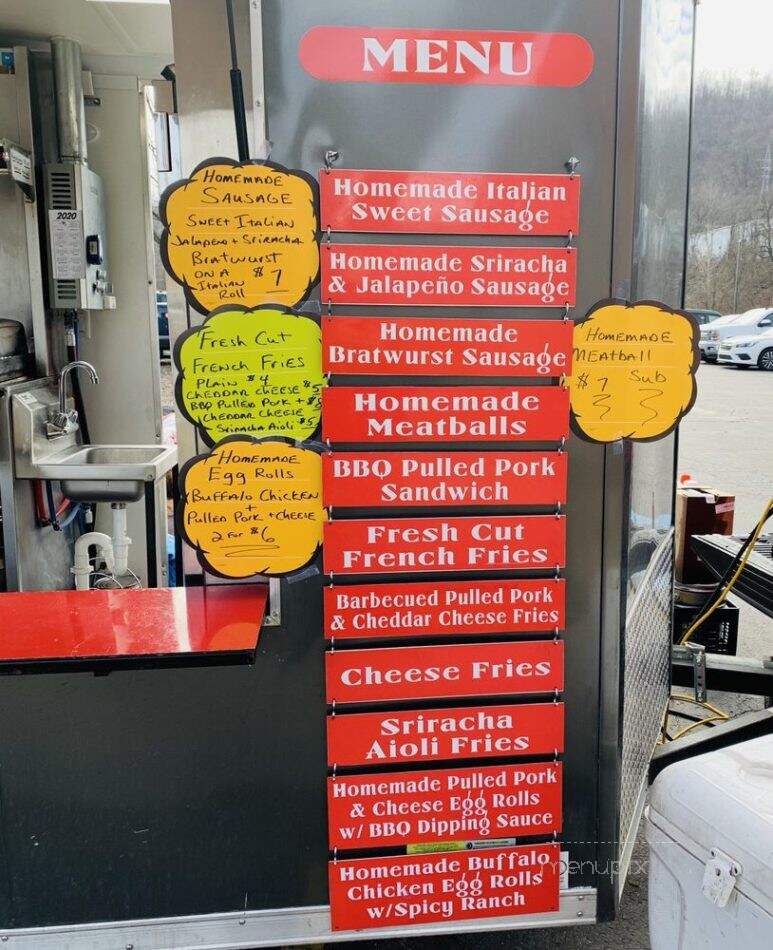 MENU
HOMEMADE
SAUSAGE
SWEET ITALIAN
JALAPENO + SRIRACHA
BRATWURST
ON A $7
ITALIAN
ROLL
FRESH CUT
FRENCH FRIES
PLAIN $4
CHEDDAR CHEESE $5
BBQ PULLED PORK +
CHEDDAR CHEESE
SRIRACHA AIOLI $5
HOMEMADE
EGG ROLLS
BUFFALO CHICKEN
+
PULLED PORK + CHEESE
2 FOR $6
Homemade Italian
Sweet Sausage
Homemade Sriracha
& Jalapeño Sausage
Homemade
Bratwurst Sausage
Homemade
Meatballs
BBQ Pulled Pork
Sandwich
Fresh Cut
French Fries
Barbecued Pulled Pork
& Cheddar Cheese Fries
Cheese Fries
Sriracha
Aioli Fries
Homemade Pulled Pork
& Cheese Egg Rolls
w/ BBQ Dipping Sauce
Homemade Buffalo
Chicken Egg Rolls
w/Spicy Ranch
HOMEMADE
MEATBALL
$7 SUB
2020
menupix